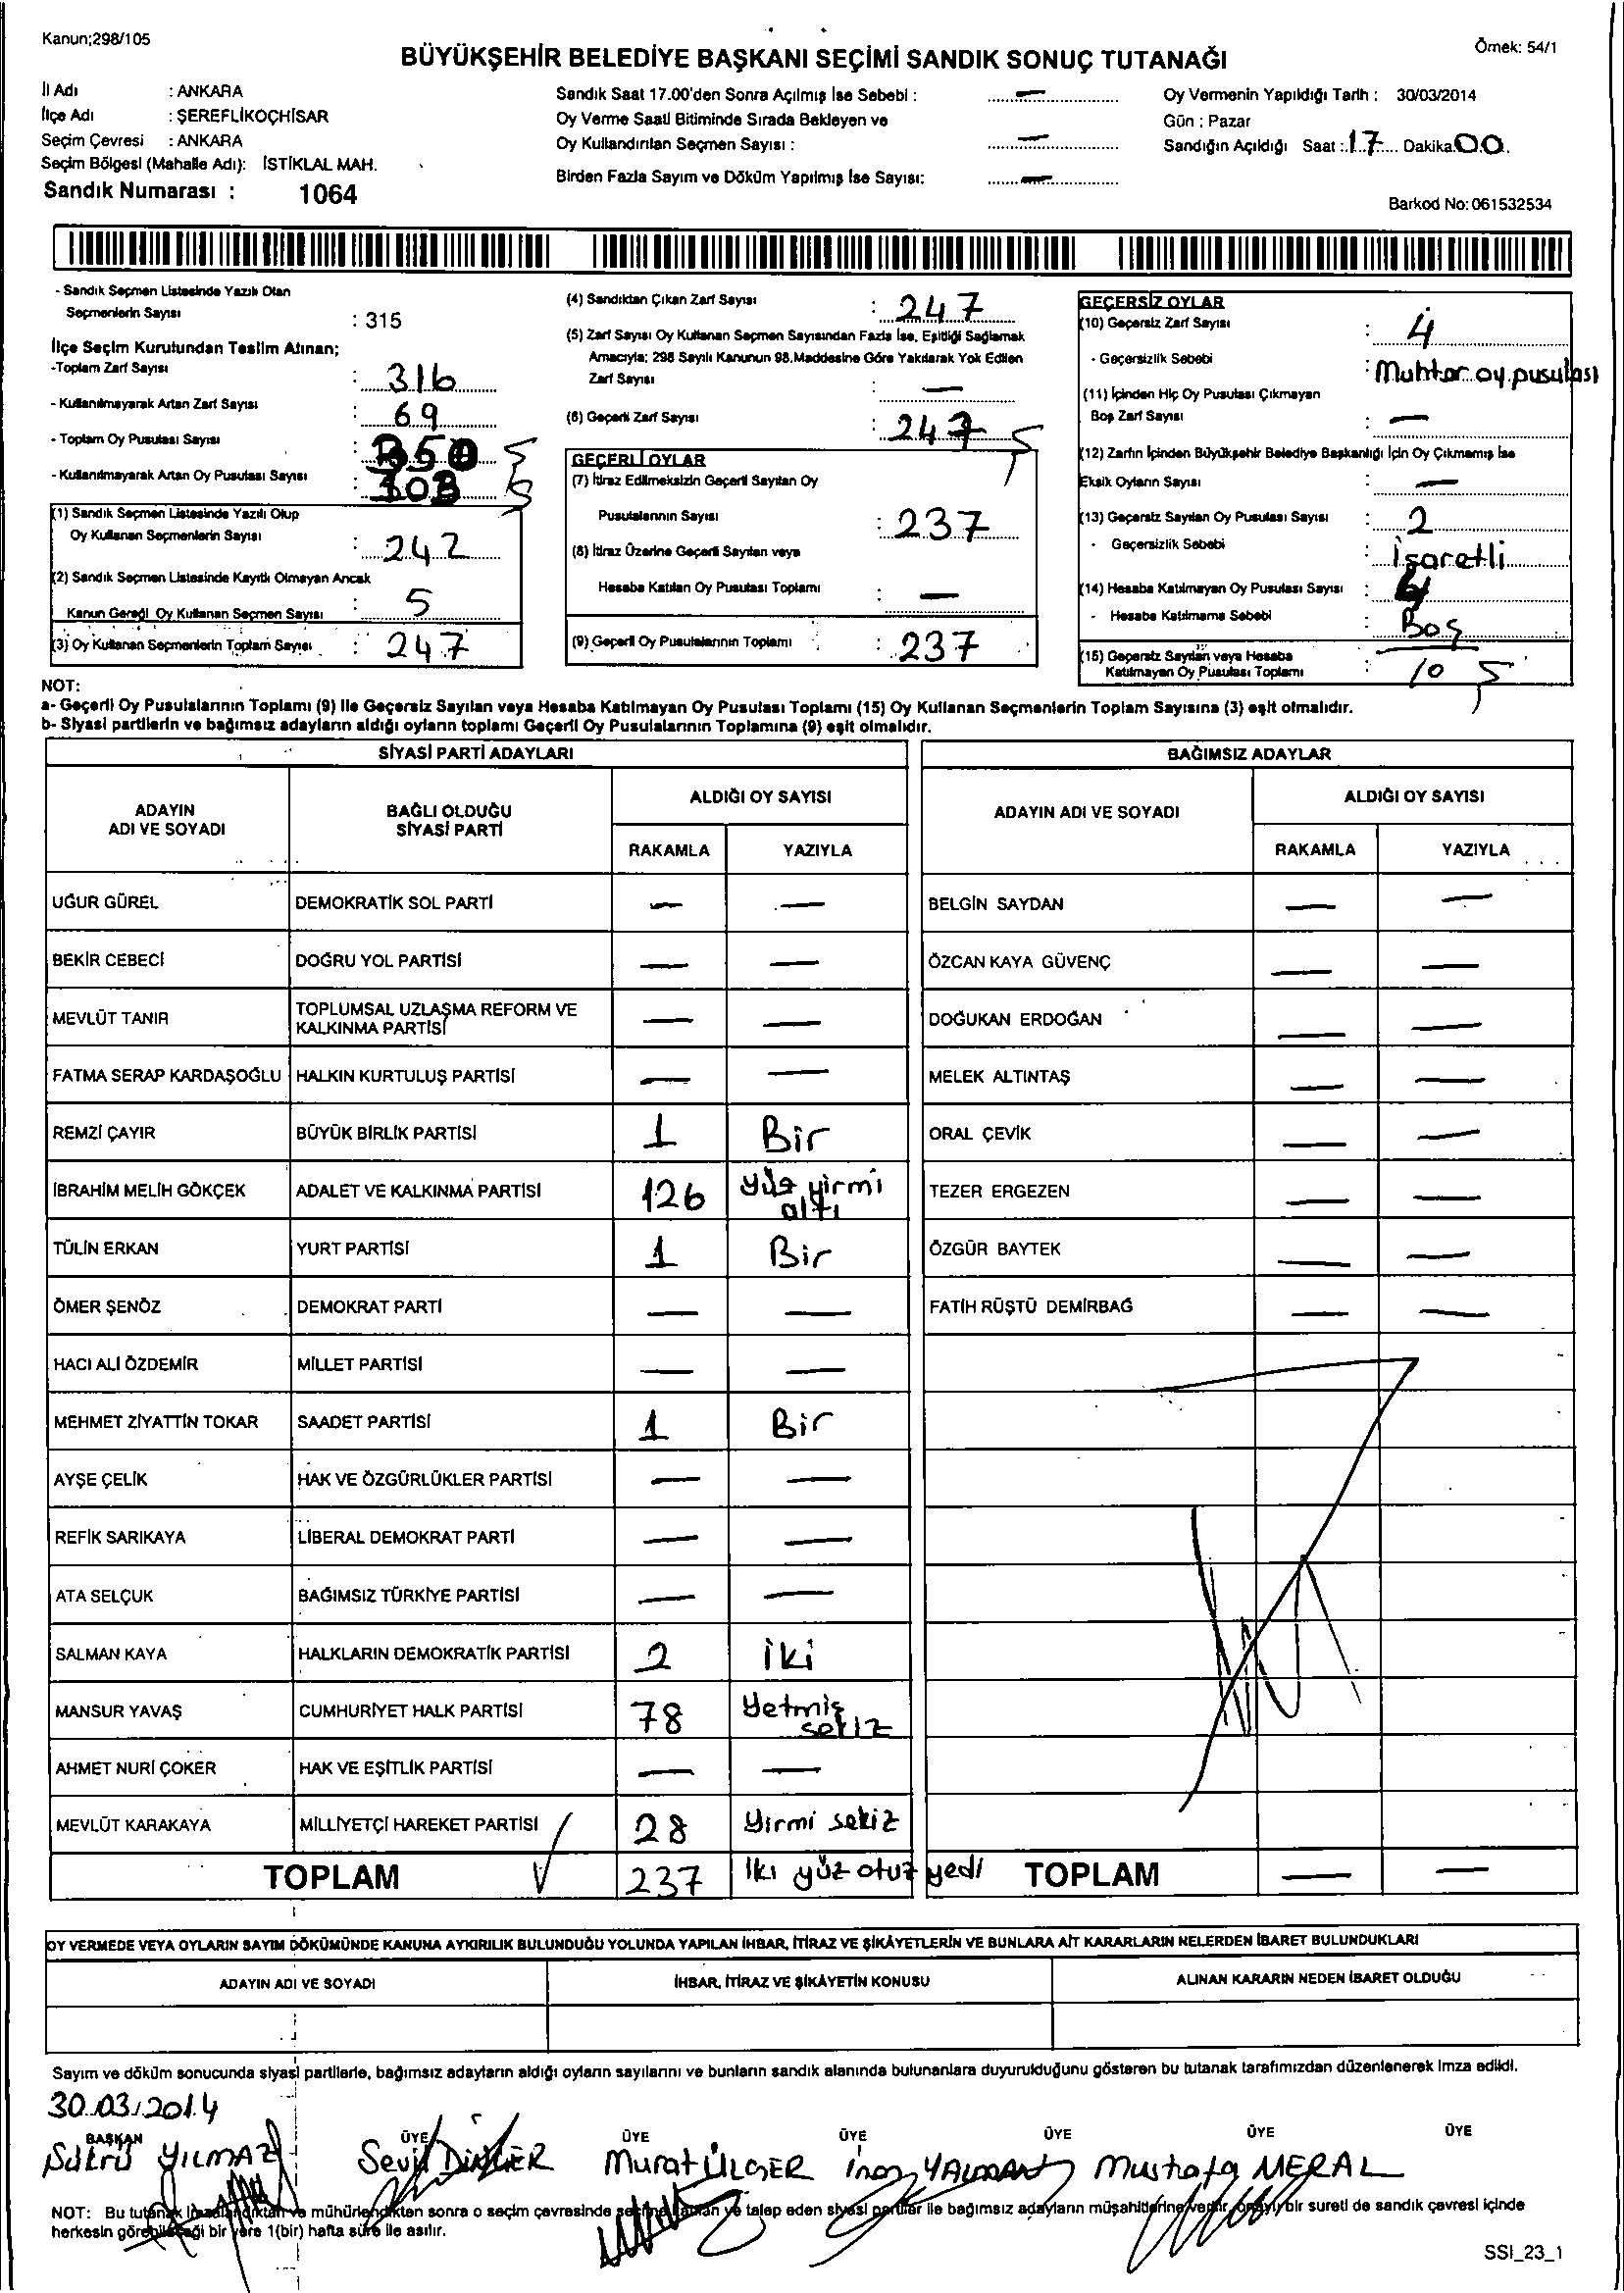 Kanun;298/105
Örnek: 54/1
BÜYÜKŞEHİR BELEDİYE BAŞKANI SEÇİMİ SANDIK SONUÇ TUTANAĞI
İl Adı : ANKARA
İlçe Adı : ŞEREFLİKOÇHİSAR
Seçim Çevresi : ANKARA
Seçim Bölgesi (Mahalle Adı): İSTİKLAL MAH.
Sandık Numarası : 1064
Sandık Saat 17.00'den Sonra Açılmış İse Sebebi : —
Oy Verme Saati Bitiminde Sırada Bekleyen ve
Oy Kullandırılan Seçmen Sayısı : —
Birden Fazla Sayım ve Döküm Yapılmış İse Sayısı: —
Oy Vermenin Yapıldığı Tarih : 30/03/2014
Gün : Pazar
Sandığın Açıldığı Saat : 17 Dakika 00
Barkod No: 061532534
- Sandık Seçmen Listesinde Yazılı Olan
Seçmenlerin Sayısı : 315
İlçe Seçim Kurulundan Teslim Alınan;
-Toplam Zarf Sayısı : 316
- Kullanılmayarak Artan Zarf Sayısı : 69
- Toplam Oy Pusulası Sayısı : 350
- Kullanılmayarak Artan Oy Pusulası Sayısı :
(1) Sandık Seçmen Listesinde Yazılı Olup
Oy Kullanan Seçmenlerin Sayısı : 242
(2) Sandık Seçmen Listesinde Kayıtlı Olmayan Ancak
Kanun Gereği Oy Kullanan Seçmen Sayısı : 5
(3) Oy Kullanan Seçmenlerin Toplam Sayısı : 247
(4) Sandıktan Çıkan Zarf Sayısı : 247
(5) Zarf Sayısı Oy Kullanan Seçmen Sayısından Fazla İse, Eşitliği Sağlamak
Amacıyla; 298 Sayılı Kanunun 98.Maddesine Göre Yakılarak Yok Edilen
Zarf Sayısı : —
(6) Geçerli Zarf Sayısı : 247
GEÇERLİ OYLAR
(7) İtiraz Edilmeksizin Geçerli Sayılan Oy
Pusulalarının Sayısı : 237
(8) İtiraz Üzerine Geçerli Sayılan veya
Hesaba Katılan Oy Pusulası Toplamı : —
(9) Geçerli Oy Pusulalarının Toplamı : 237
GEÇERSİZ OYLAR
(10) Geçersiz Zarf Sayısı : 4
- Geçersizlik Sebebi : Muhtar oy pusulası
(11) İçinden Hiç Oy Pusulası Çıkmayan
Boş Zarf Sayısı : —
(12) Zarfın İçinden Büyükşehir Belediye Başkanlığı İçin Oy Çıkmamış İse
Eksik Oyların Sayısı : —
(13) Geçersiz Sayılan Oy Pusulası Sayısı : 2
- Geçersizlik Sebebi : İşaretli
(14) Hesaba Katılmayan Oy Pusulası Sayısı :
- Hesaba Katılmama Sebebi : Boş
(15) Geçersiz Sayılan veya Hesaba
Katılmayan Oy Pusulası Toplamı : 10
NOT:
a- Geçerli Oy Pusulalarının Toplamı (9) İle Geçersiz Sayılan veya Hesaba Katılmayan Oy Pusulası Toplamı (15) Oy Kullanan Seçmenlerin Toplam Sayısına (3) eşit olmalıdır.
b- Siyasi partilerin ve bağımsız adayların aldığı oyların toplamı Geçerli Oy Pusulalarının Toplamına (9) eşit olmalıdır.
SİYASİ PARTİ ADAYLARI
ADAYIN ADI VE SOYADI
BAĞLI OLDUĞU SİYASİ PARTİ
ALDIĞI OY SAYISI
RAKAMLA YAZIYLA
UĞUR GÜREL DEMOKRATİK SOL PARTİ — —
BEKİR CEBECİ DOĞRU YOL PARTİSİ — —
MEVLÜT TANIR TOPLUMSAL UZLAŞMA REFORM VE KALKINMA PARTİSİ — —
FATMA SERAP KARDAŞOĞLU HALKIN KURTULUŞ PARTİSİ — —
REMZİ ÇAYIR BÜYÜK BİRLİK PARTİSİ 1 Bir
İBRAHİM MELİH GÖKÇEK ADALET VE KALKINMA PARTİSİ 126 yüz yirmi altı
TÜLİN ERKAN YURT PARTİSİ 1 Bir
ÖMER ŞENÖZ DEMOKRAT PARTİ — —
HACI ALİ ÖZDEMİR MİLLET PARTİSİ — —
MEHMET ZİYATTİN TOKAR SAADET PARTİSİ 1 Bir
AYŞE ÇELİK HAK VE ÖZGÜRLÜKLER PARTİSİ — —
REFİK SARIKAYA LİBERAL DEMOKRAT PARTİ — —
ATA SELÇUK BAĞIMSIZ TÜRKİYE PARTİSİ — —
SALMAN KAYA HALKLARIN DEMOKRATİK PARTİSİ 2 iki
MANSUR YAVAŞ CUMHURİYET HALK PARTİSİ 78 Yetmiş sekiz
AHMET NURİ ÇOKER HAK VE EŞİTLİK PARTİSİ — —
MEVLÜT KARAKAYA MİLLİYETÇİ HAREKET PARTİSİ 28 Yirmi sekiz
TOPLAM 237 iki yüz otuz yedi
BAĞIMSIZ ADAYLAR
ADAYIN ADI VE SOYADI
ALDIĞI OY SAYISI
RAKAMLA YAZIYLA
BELGİN SAYDAN — —
ÖZCAN KAYA GÜVENÇ — —
DOĞUKAN ERDOĞAN — —
MELEK ALTINTAŞ — —
ORAL ÇEVİK — —
TEZER ERGEZEN — —
ÖZGÜR BAYTEK — —
FATİH RÜŞTÜ DEMİRBAĞ — —
TOPLAM — —
OY VERMEDE VEYA OYLARIN SAYIM DÖKÜMÜNDE KANUNA AYKIRILIK BULUNDUĞU YOLUNDA YAPILAN İHBAR, İTİRAZ VE ŞİKÂYETLERİN VE BUNLARA AİT KARARLARIN NELERDEN İBARET BULUNDUKLARI
ADAYIN ADI VE SOYADI İHBAR, İTİRAZ VE ŞİKÂYETİN KONUSU ALINAN KARARIN NEDEN İBARET OLDUĞU
Sayım ve döküm sonucunda siyasi partilerle, bağımsız adayların aldığı oyların sayılarını ve bunların sandık alanında bulunanlara duyurulduğunu gösteren bu tutanak tarafımızdan düzenlenerek imza edildi.
30.03.2014
BAŞKAN ÜYE ÜYE ÜYE ÜYE ÜYE ÜYE
Şükrü YILMAZ Sevil Murat ÜLGER YALMAN Mustafa MERAL
NOT: Bu tutanak imzalandıktan ve mühürlendikten sonra o seçim çevresinde seçime katılan ve talep eden siyasi partiler ile bağımsız adayların müşahitlerine verilir, onaylı bir sureti de sandık çevresi içinde
herkesin görebileceği bir yere 1(bir) hafta süre ile asılır.
SSI_23_1